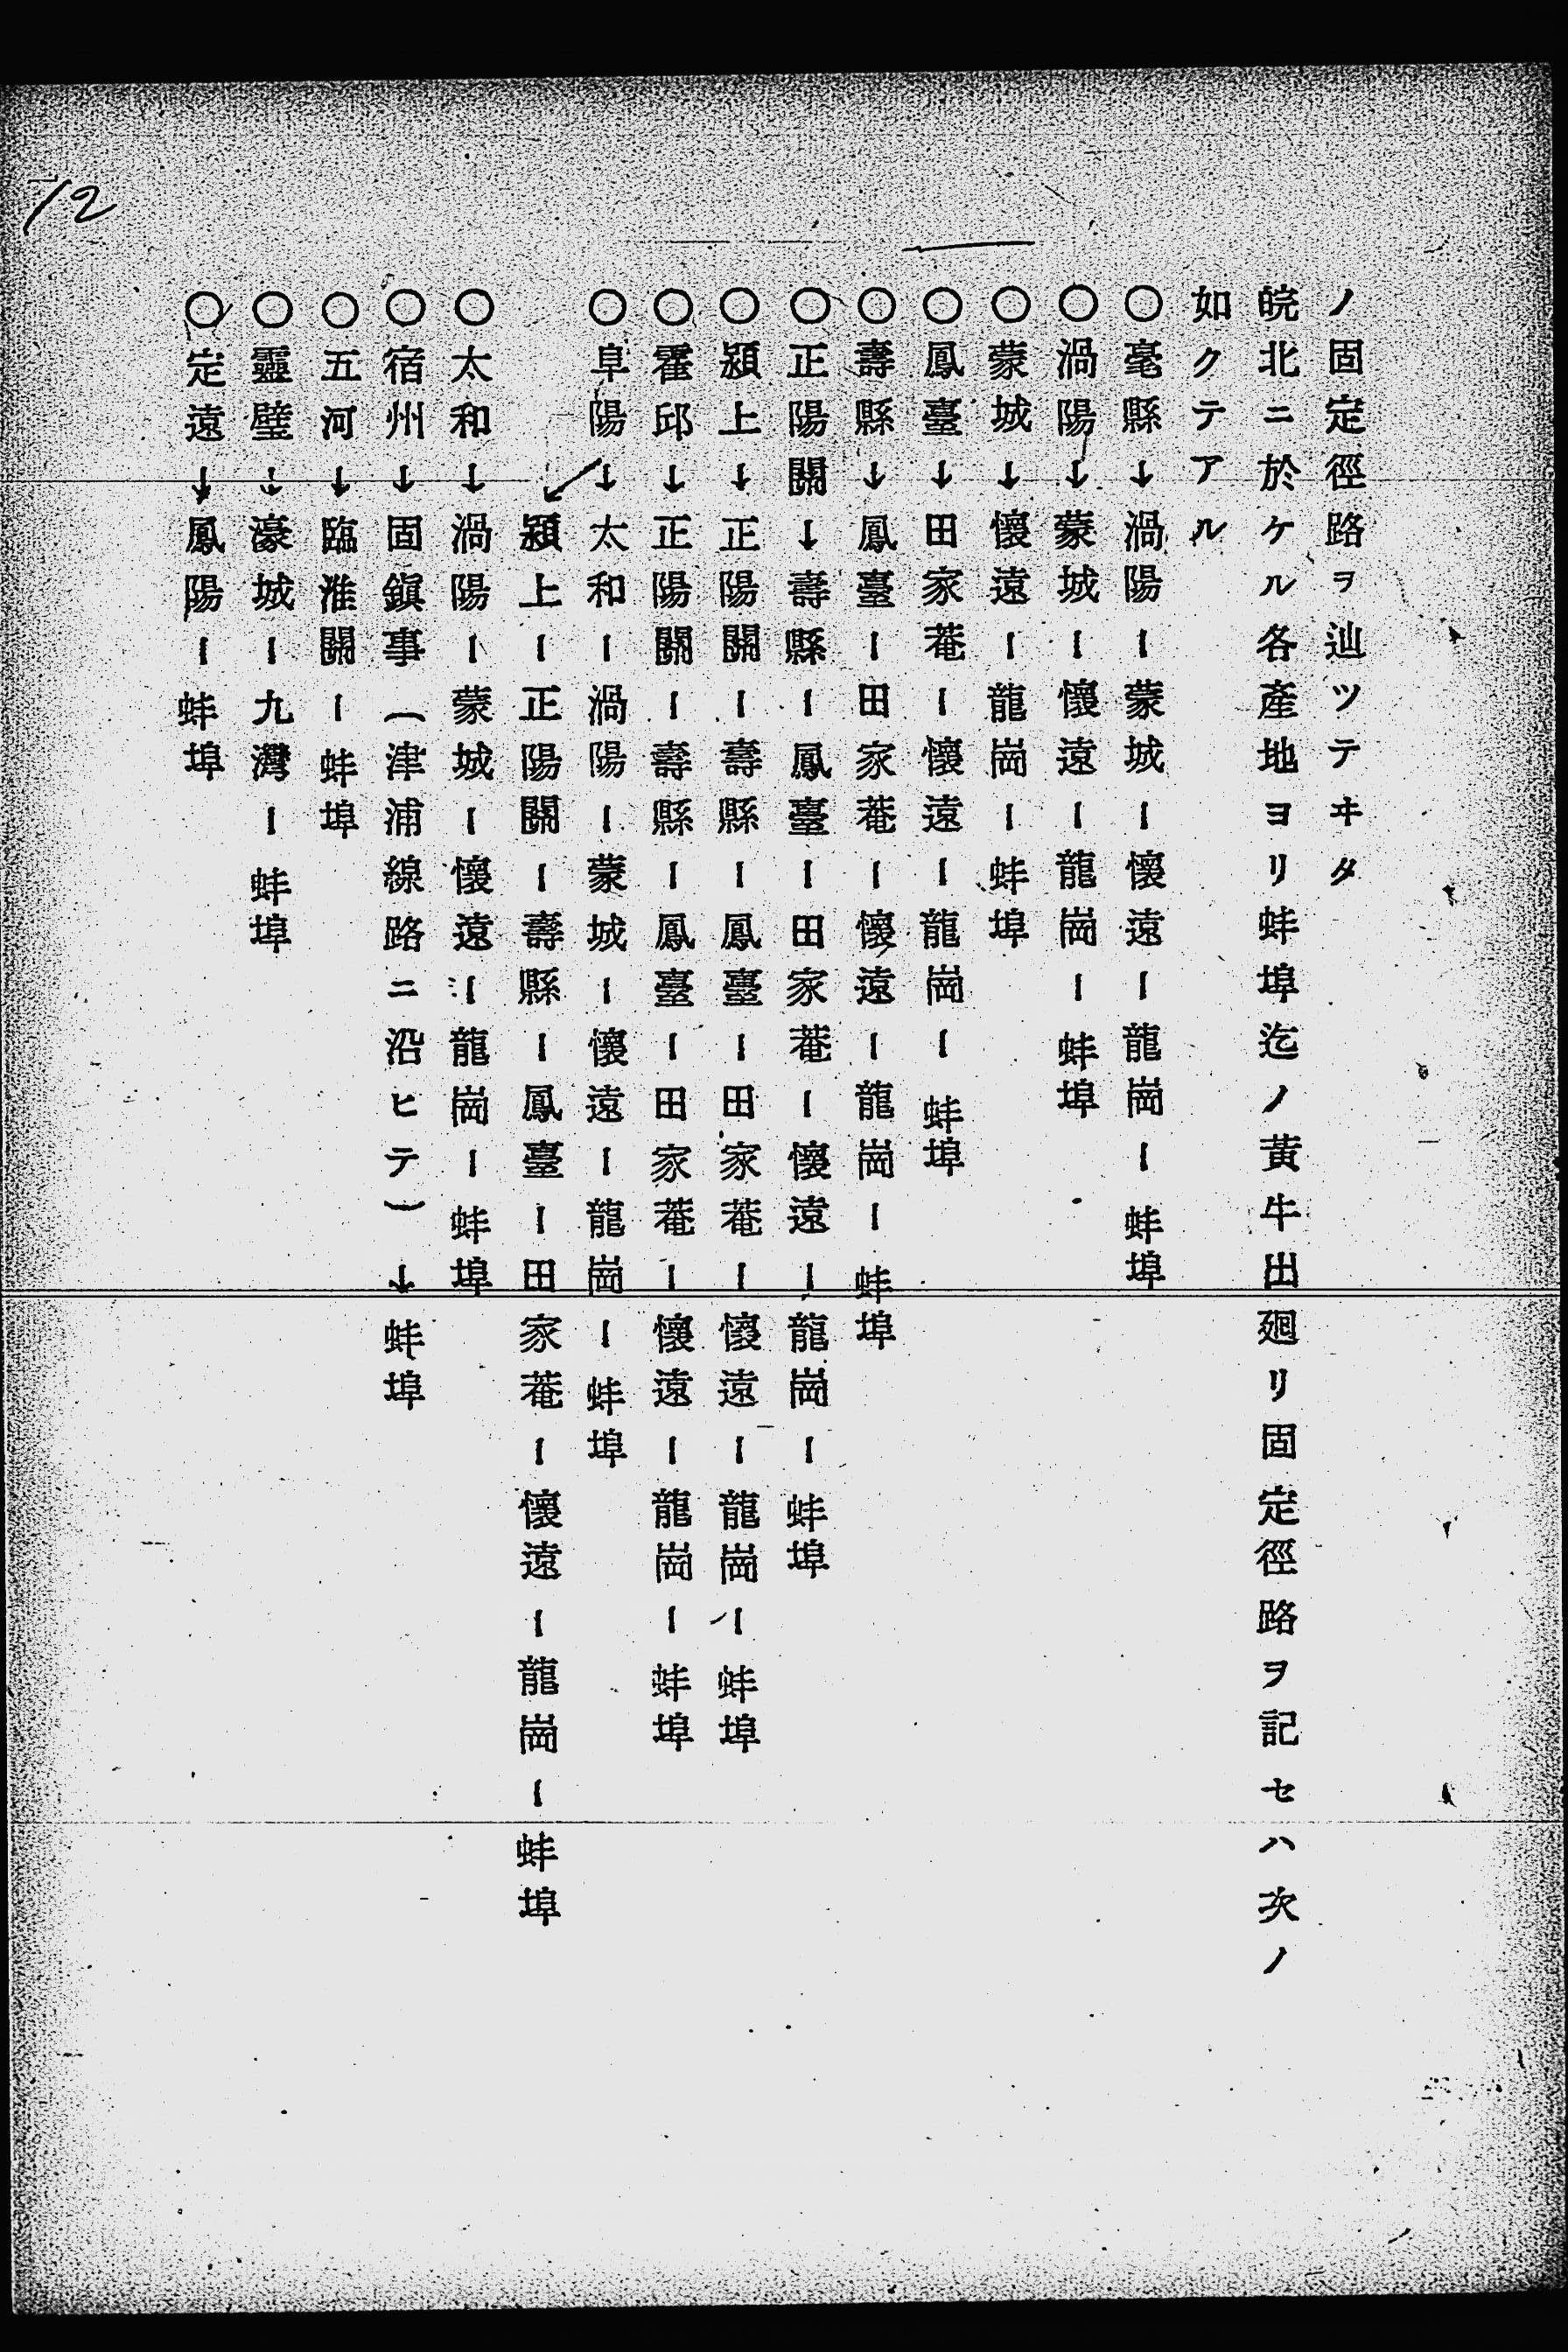 ノ固定徑路ヲ辿ツテヰタ
皖北ニ於ケル各產地ヨリ蚌埠迄ノ黃牛出廻リ固定徑路ヲ記セハ次ノ
如クテアル
○亳縣→渦陽ー蒙城ー懷遠ー龍崗ー蚌埠
○渦陽→蒙城ー懷遠ー龍崗ー蚌埠
○蒙城→懷遠ー龍崗ー蚌埠
○鳳臺→田家菴ー懷遠ー龍崗ー蚌埠
○壽縣→鳳臺ー田家菴ー懷遠ー龍崗ー蚌埠
○正陽關→壽縣ー鳳臺ー田家菴ー懷遠ー龍崗ー蚌埠
○潁上→正陽關ー壽縣ー鳳臺ー田家菴ー懷遠ー龍崗ー蚌埠
○霍邱→正陽關ー壽縣ー鳳臺ー田家菴ー懷遠ー龍崗ー蚌埠
○阜陽→太和ー渦陽ー蒙城ー懷遠ー龍崗ー蚌埠
↙潁上ー正陽關ー壽縣ー鳳臺ー田家菴ー懷遠ー龍崗ー蚌埠
○太和→渦陽ー蒙城ー懷遠ー龍崗ー蚌埠
○宿州→固鎭事(津浦線路ニ沿ヒテ)→蚌埠
○五河→臨淮關ー蚌埠
○靈璧→濠城ー九灣ー蚌埠
○定遠→鳳陽ー蚌埠
72